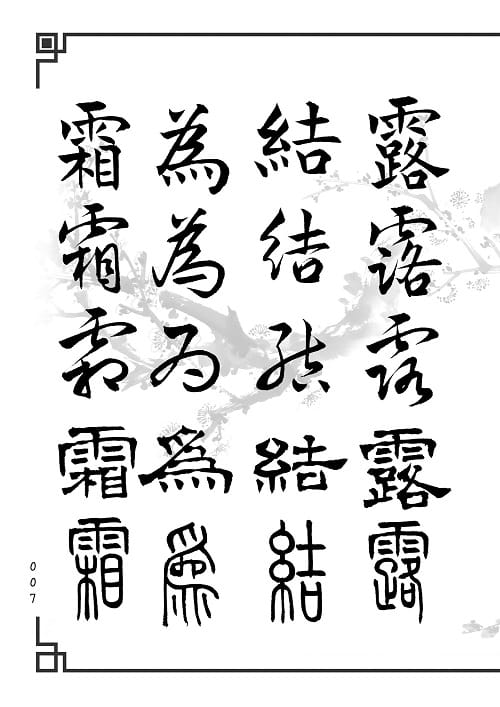 露露露露露
結結結結結
為為為爲爲
霜霜霜霜霜
007